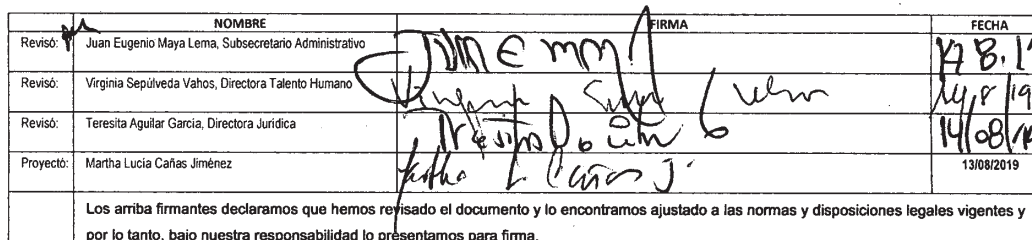 NOMBRE FIRMA FECHA
Revisó: Juan Eugenio Maya Lema, Subsecretario Administrativo
Revisó: Virginia Sepúlveda Vahos, Directora Talento Humano 14/8/19
Revisó: Teresita Aguilar García, Directora Jurídica 14/08/19
Proyectó: Martha Lucía Cañas Jiménez Martha L Cañas J. 13/08/2019
Los arriba firmantes declaramos que hemos revisado el documento y lo encontramos ajustado a las normas y disposiciones legales vigentes y
por lo tanto, bajo nuestra responsabilidad lo presentamos para firma.